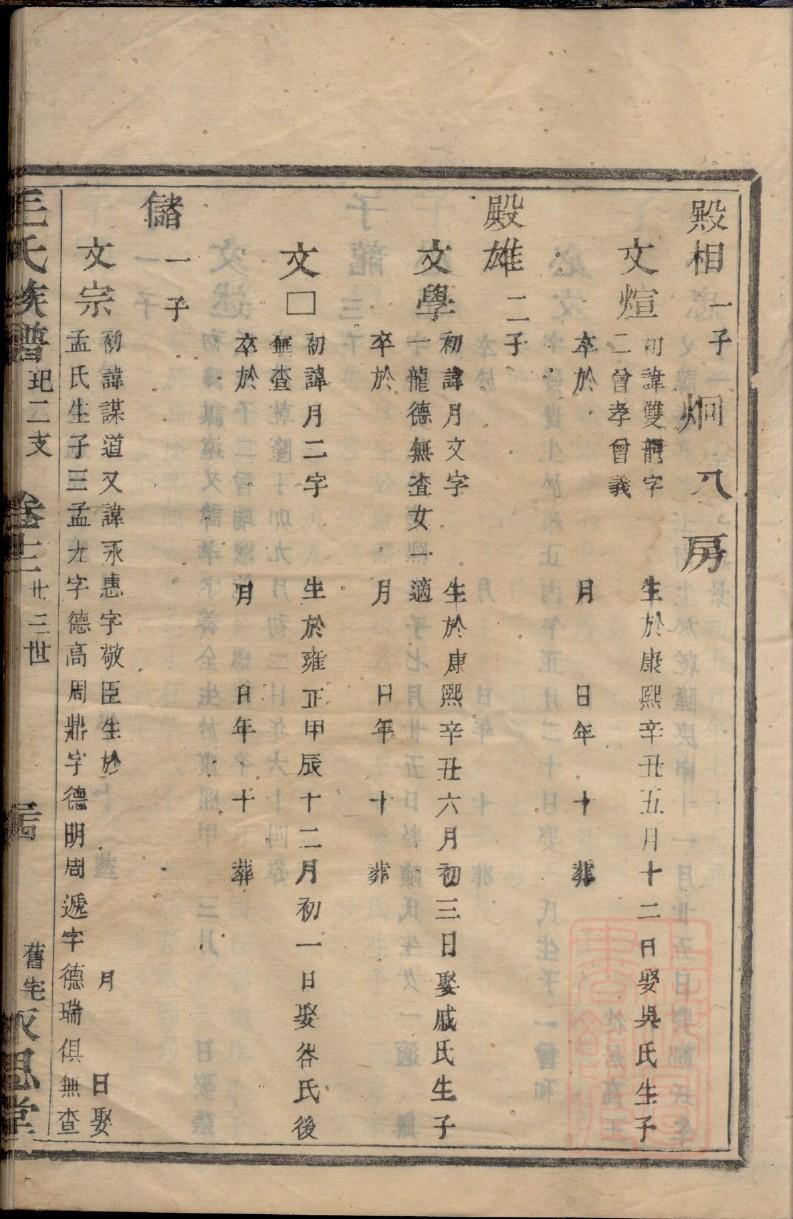 殿相一子一炯八房
文煊初諱雙龍字 生於康熙辛丑五月十二日娶吳氏生子
二曾孝曾義
卒於 月 日年 十 葬
殿雄二子
文學初諱月文字 生於康熙辛丑六月初三日娶戚氏生子
一龍德無查女一適
卒於 月 日年 十 葬
文□初諱月二字 生於雍正甲辰十二月初一日娶昝氏後
無查
卒於 月 日年 十 葬
儲一子
文宗初諱謀道又諱永惠字敬臣生於 月 日娶
孟氏生子三孟九字德高周鼎字德明周遞字德瑞俱無查
王氏族譜 玘二支 卷十二 廿三世 舊宅 永思堂